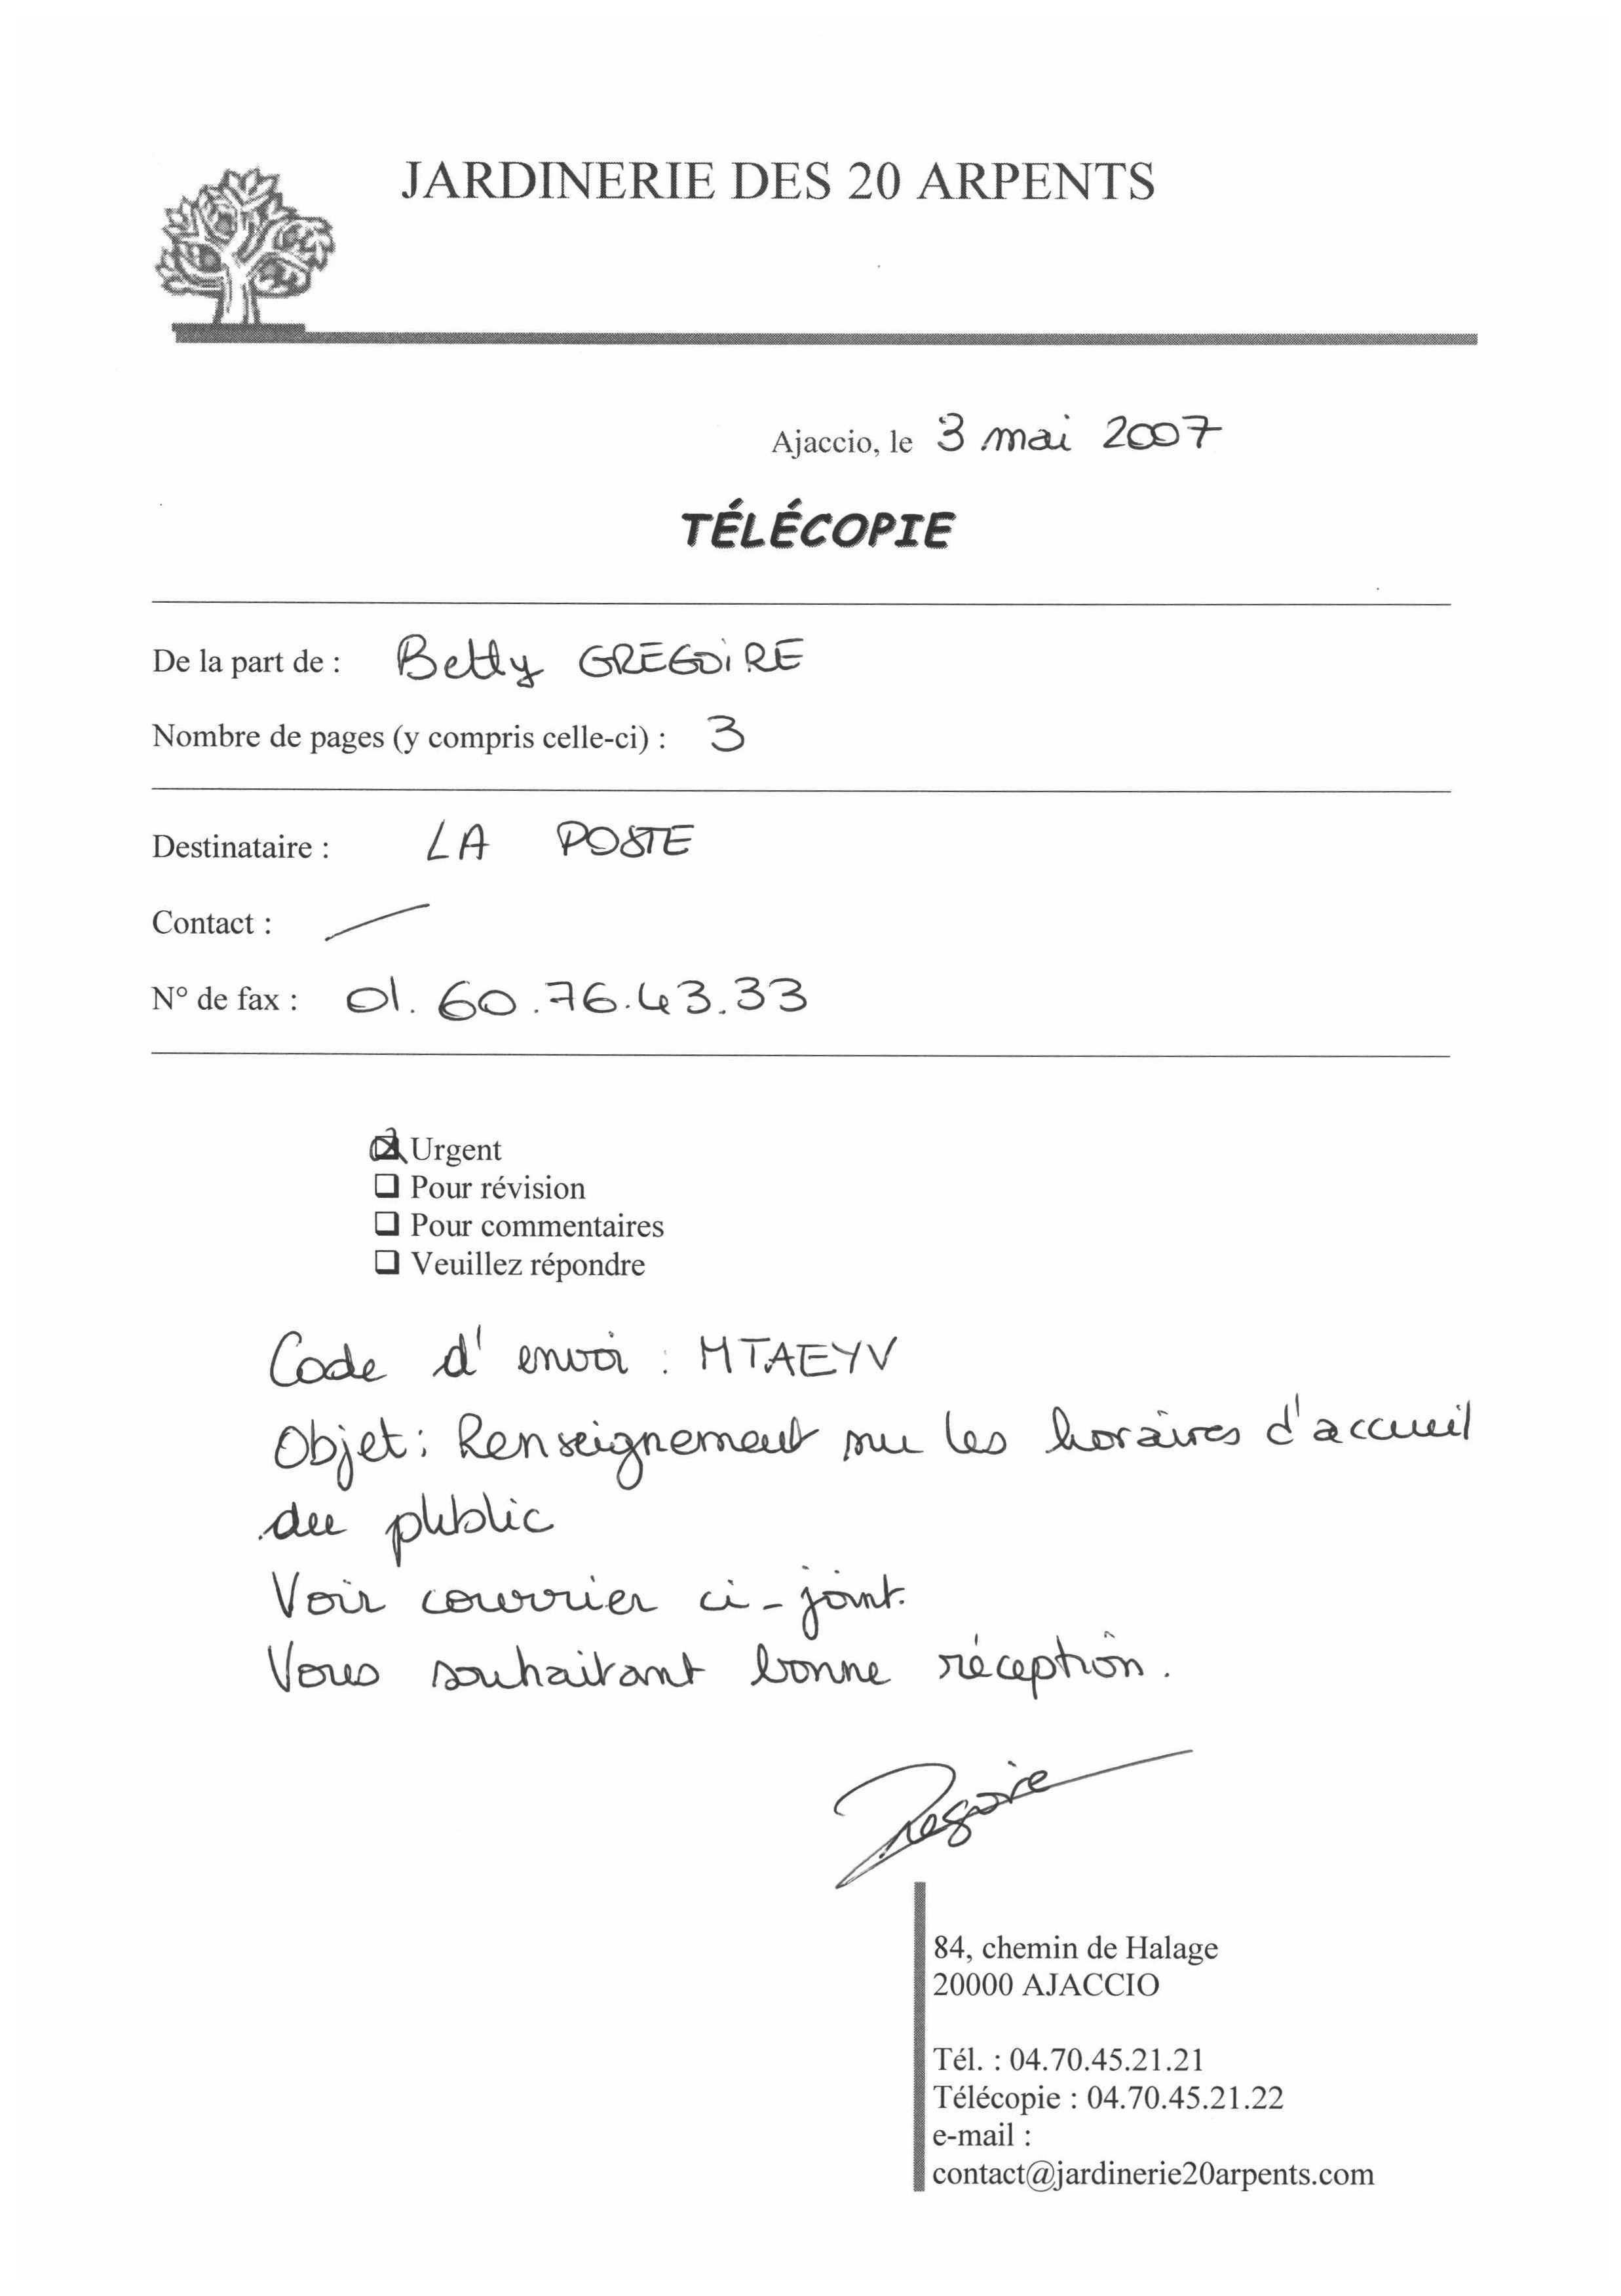 JARDINERIE DES 20 ARPENTS
Ajaccio, le 3 mai 2007
TÉLÉCOPIE
De la part de : Betty GREGOIRE
Nombre de pages (y compris celle-ci) : 3
Destinataire : LA POSTE
Contact :
N° de fax : 01.60.76.43.33
Urgent
Pour révision
Pour commentaires
Veuillez répondre
Code d'envoi : MTAEYV
Objet : Renseignement sur les horaires d'accueil
du public
Voir courrier ci-joint.
Vous souhaitant bonne réception.
Gregoire
84, chemin de Halage
20000 AJACCIO
Tél. : 04.70.45.21.21
Télécopie : 04.70.45.21.22
e-mail :
contact@jardinerie20arpents.com